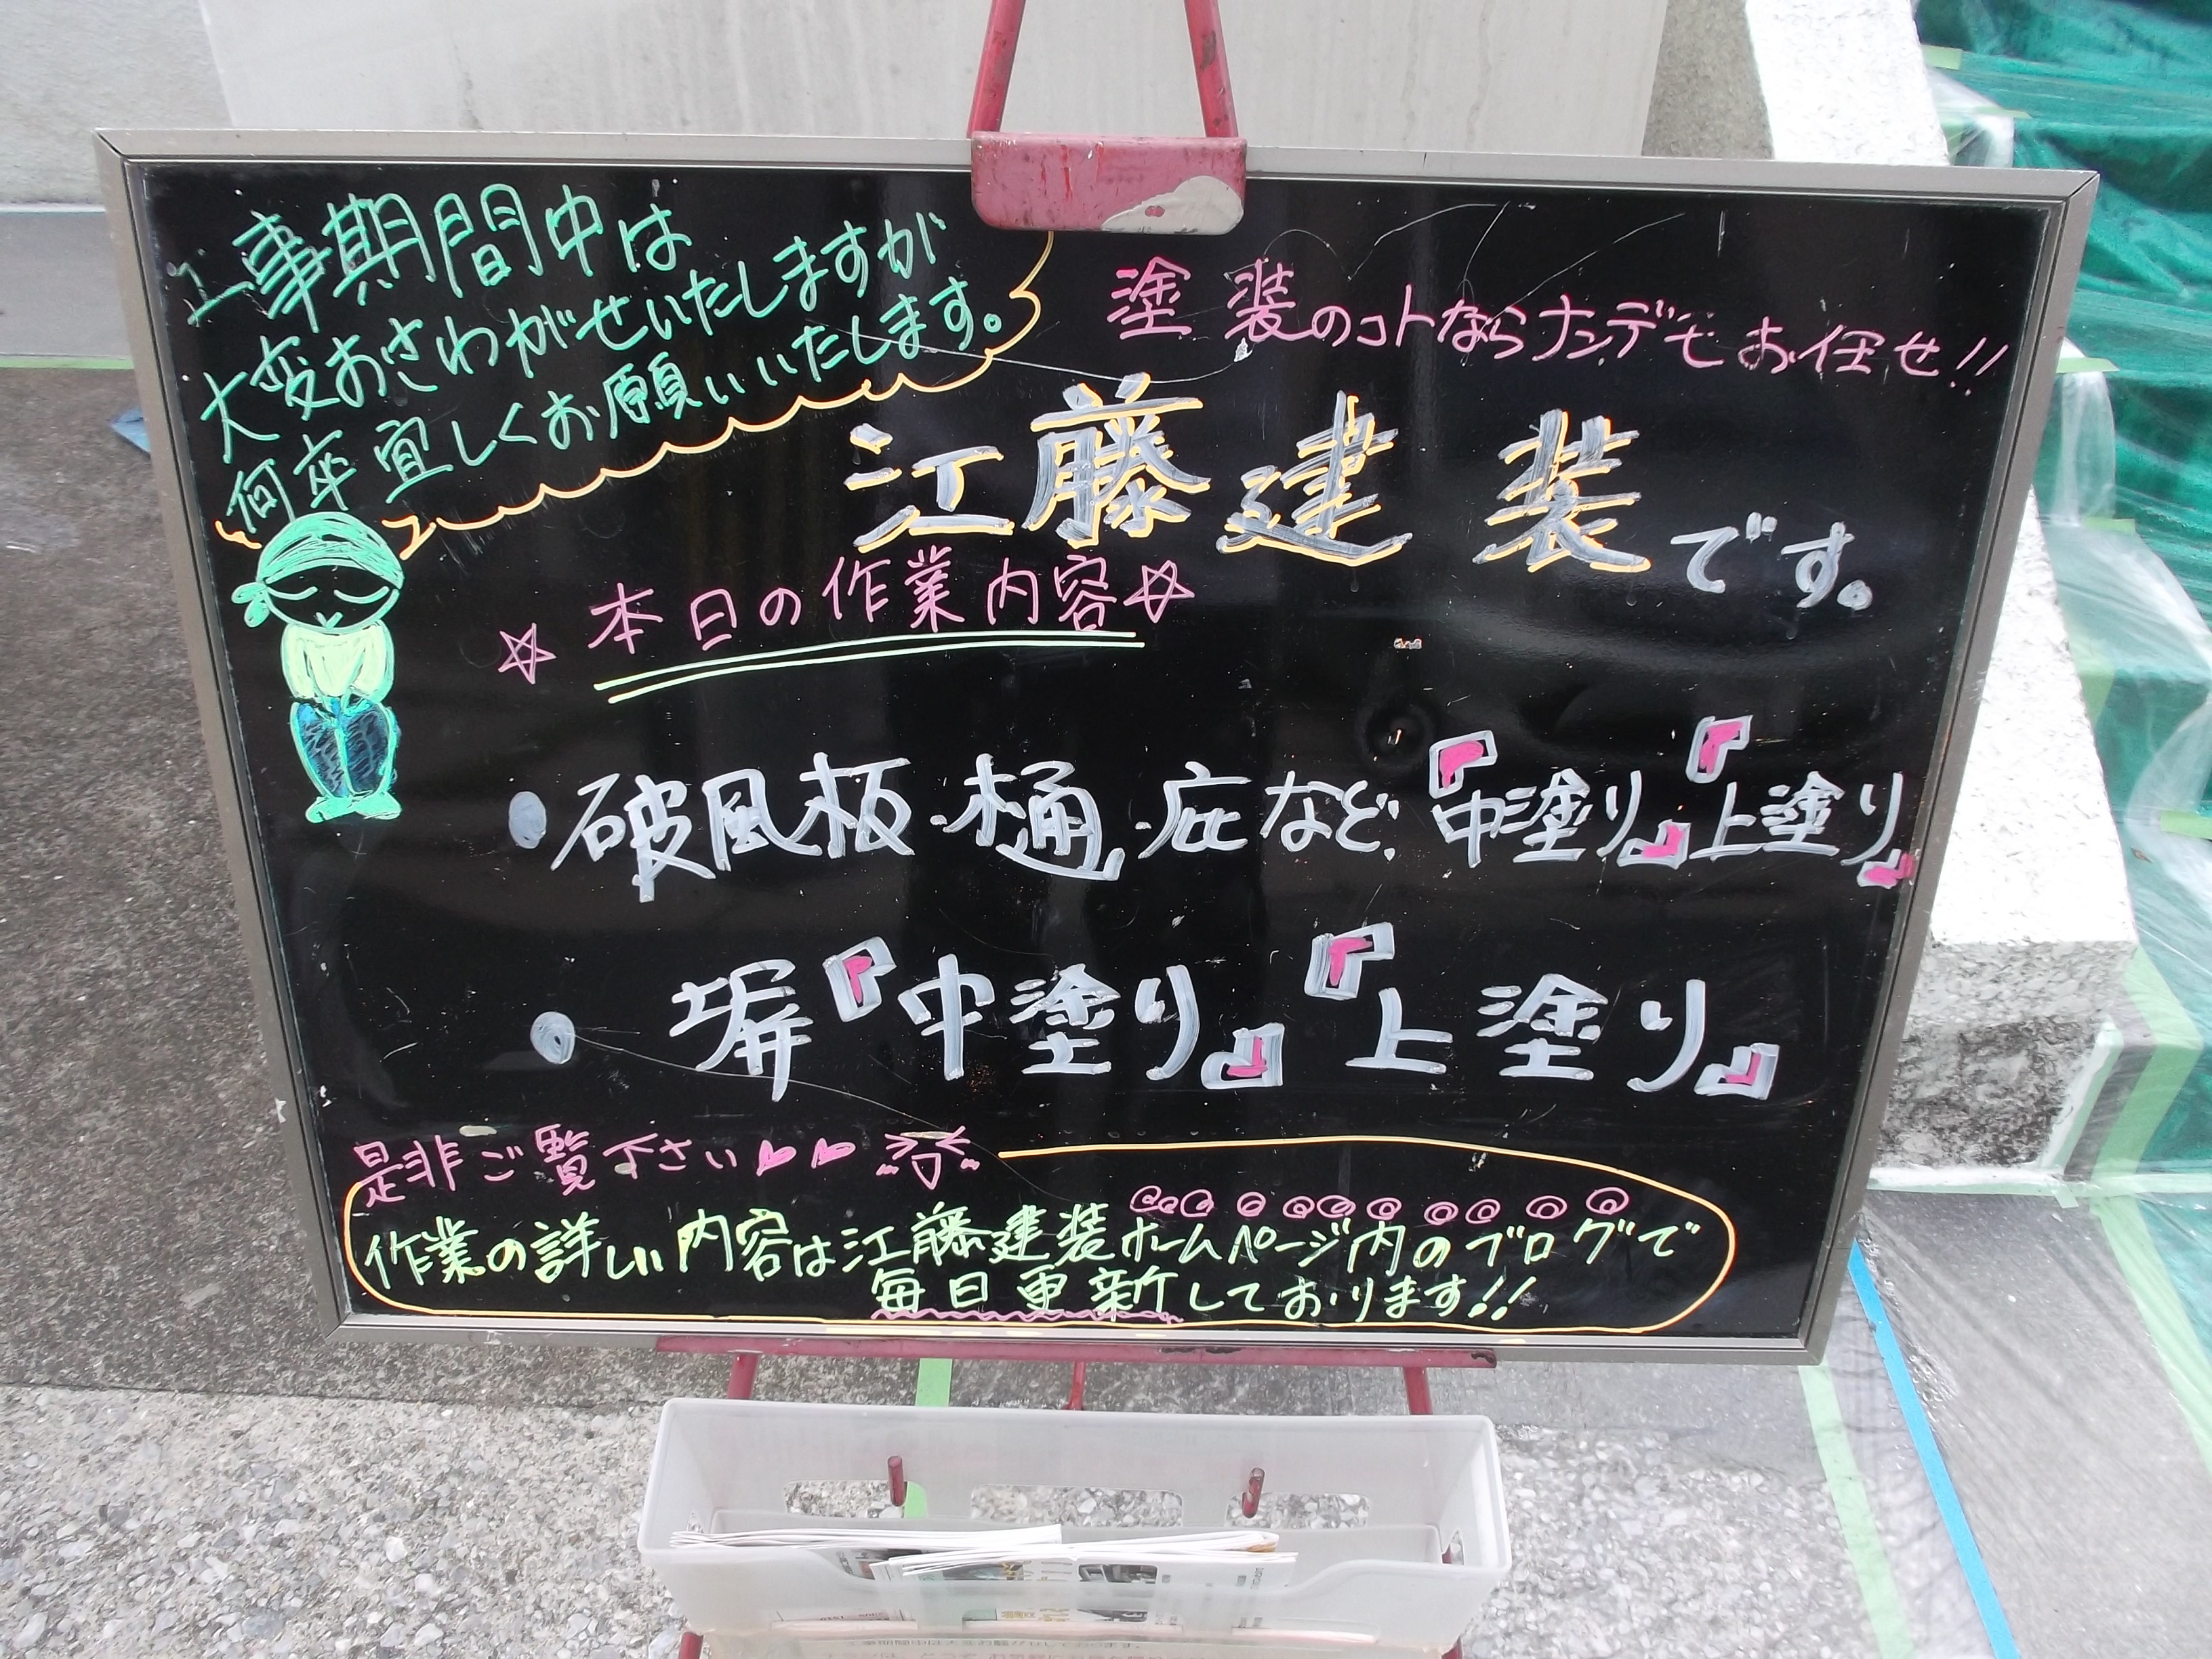 工事期間中は
大変おさわがせいたしますが
何卒宜しくお願いいたします。
塗装のコトならナンデモお任せ!!
江藤建装です。
☆本日の作業内容☆
●破風板・樋・庇など『中塗り』『上塗り』
●塀『中塗り』『上塗り』
是非ご覧下さい
作業の詳しい内容は江藤建装ホームページ内のブログで
毎日更新しております!!